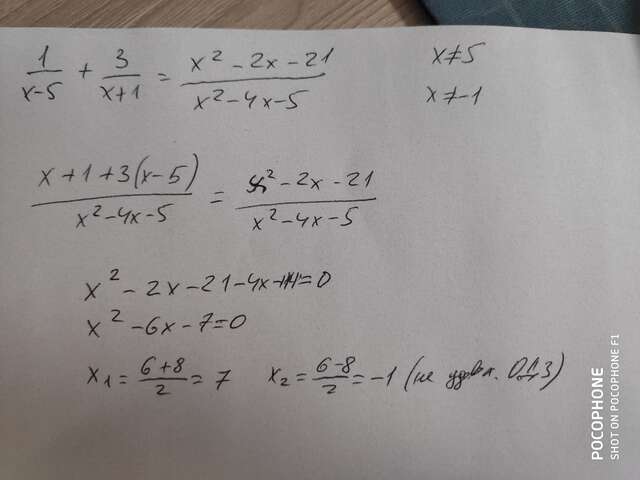 1/(x-5) + 3/(x+1) = (x² - 2x - 21)/(x² - 4x - 5) x≠5
x≠-1
(x + 1 + 3(x-5))/(x² - 4x - 5) = (x² - 2x - 21)/(x² - 4x - 5)
x² - 2x - 21 - 4x + 14 = 0
x² - 6x - 7 = 0
x₁ = (6+8)/2 = 7 x₂ = (6-8)/2 = -1 (не удовл. ОДЗ)
POCOPHONE
SHOT ON POCOPHONE F1